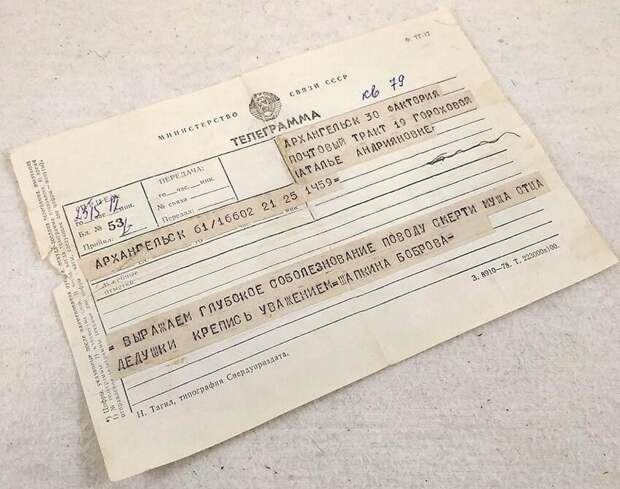 Ф. ТГ-12
МИНИСТЕРСТВО СВЯЗИ СССР
ТЕЛЕГРАММА
кв 79
АРХАНГЕЛЬСК 30 ФАКТОРИЯ
ПОЧТОВЫЙ ТРАКТ 19 ГОРОХОВОЙ
НАТАЛЬЕ АНДРИЯНОВНЕ
ПЕРЕДАЧА:
го час. мин.
№ связи
Передал:
го час. мин.
Бл. № 53
Принял:
АРХАНГЕЛЬСК 61/16602 21 25 1459=
отметки:
=ВЫРАЖАЕМ ГЛУБОКОЕ СОБОЛЕЗНОВАНИЕ ПОВОДУ СМЕРТИ МУЖА ОТЦА
ДЕДУШКИ КРЕПИСЬ УВАЖЕНИЕМ=ШАПКИНА БОБРОВА=
Н. Тагил, типография Свердуприздата.
З. 8910-78. Т. 223000х100.